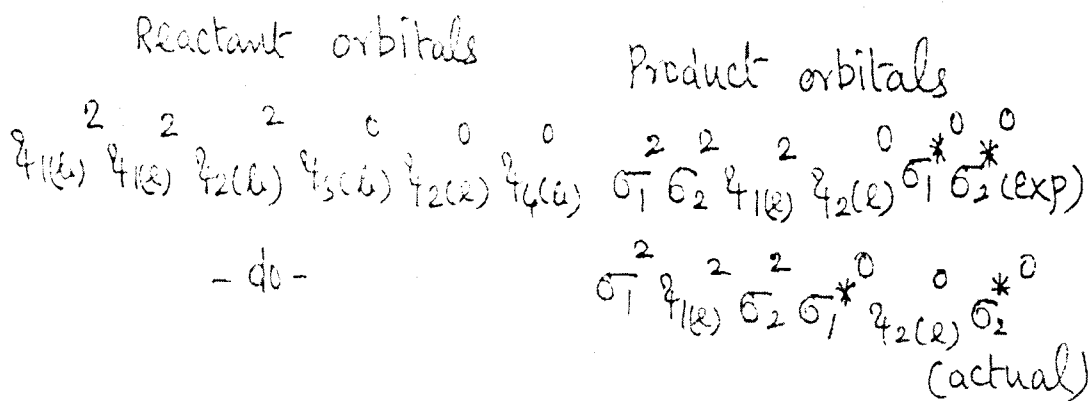 Reactant orbitals
Product orbitals
ψ₁(b)² ψ₁(e)² ψ₂(b)² ψ₃(b)⁰ ψ₂(e)⁰ ψ₄(b)⁰ σ₁² σ₂² ψ₁(e)² ψ₂(e)⁰ σ₁*⁰ σ₂*⁰ (exp)
- do - σ₁² ψ₁(e)² σ₂² σ₁*⁰ ψ₂(e)⁰ σ₂*⁰
(actual)